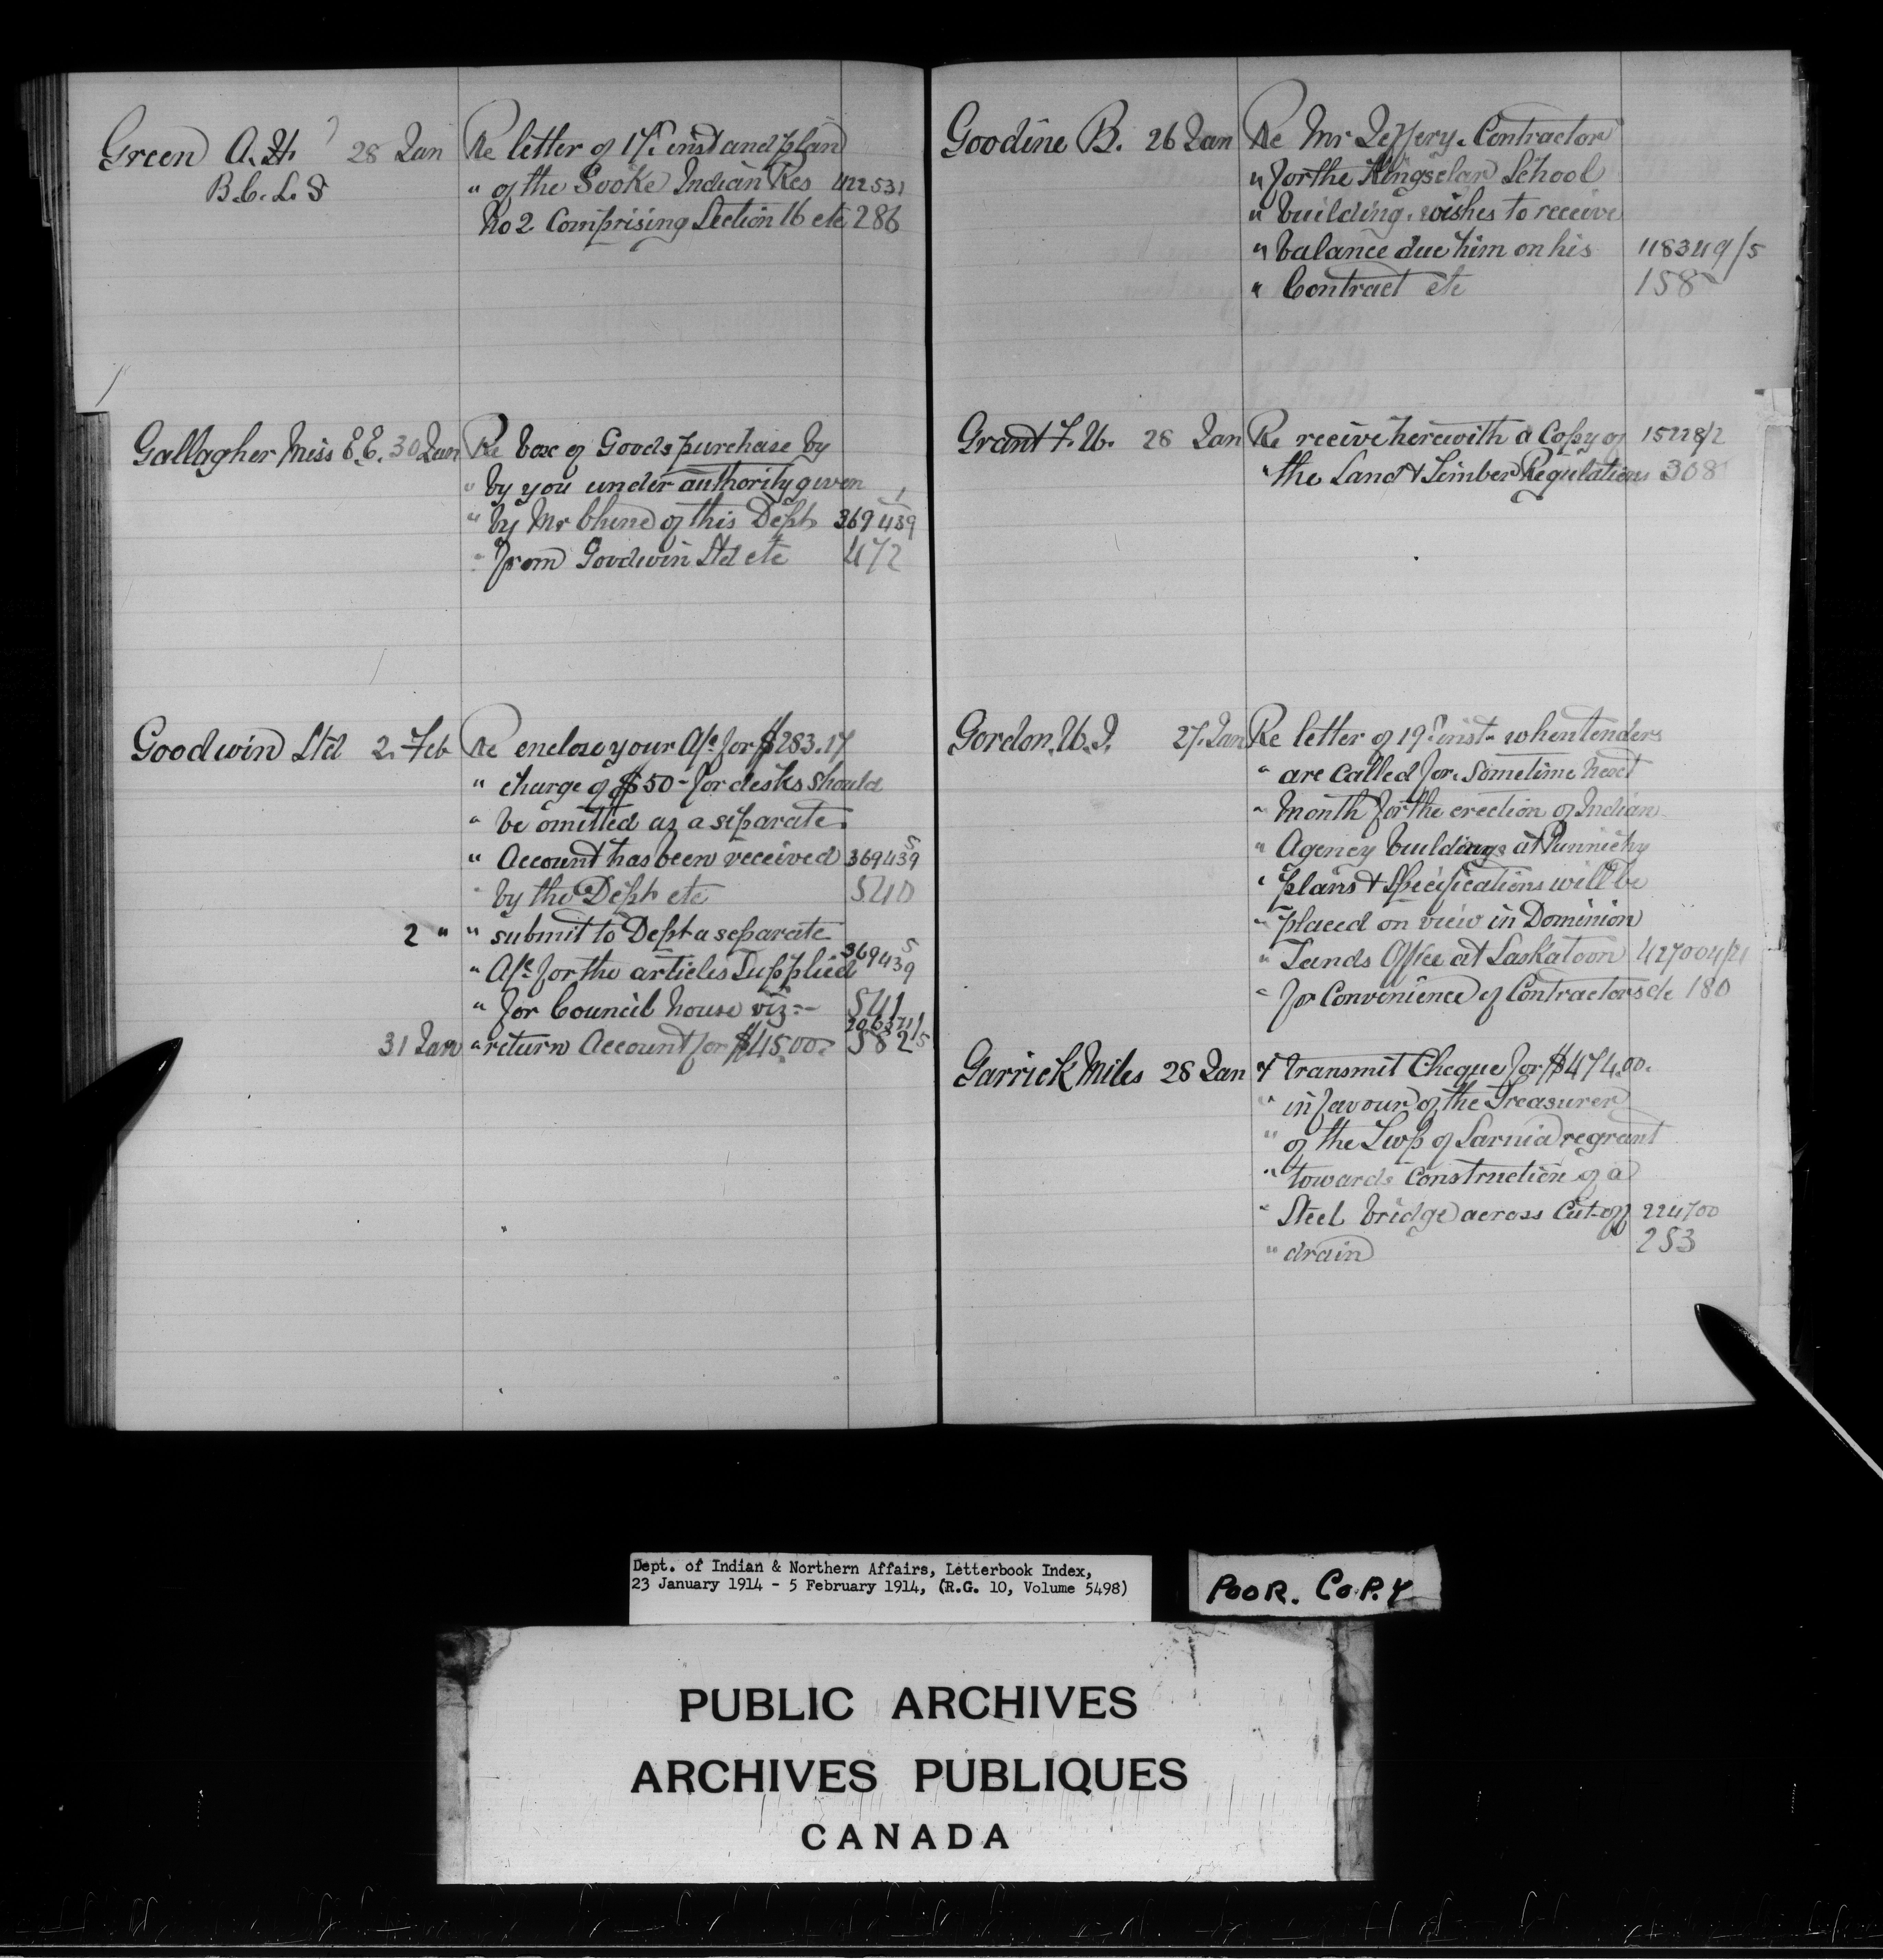 Green A. H. 28 Jan Re letter of 17th inst and plan
B.C.L.S " of the Sooke Indian Res 422531
No 2 Comprising Section 16 etc 286
Gallagher Miss E.E. 30 Jan Re box of Goods purchase by
" by you under authority given
" by Mr of this Dept 369439
" from Goodwin Ltd etc 472
Goodwin Ltd 2 Feb Re enclose your A/c for $283.17
" charge of $50- for desks should
" be omitted as a separate
" Account has been received 369439 5
" by the Dept etc 540
2 " " submit to Dept a separate
" A/c for the articles Supplied 369439 5
" for Council house viz:- 541
31 Jan " return Account for $45.00 582
Goodine B. 26 Jan Re Mr Jeffery. Contractor
" for the Kingsclar School
" building. wishes to receive
" balance due him on his 118349/5
" Contract etc 158
Grant F. W. 28 Jan Re receive herewith a Copy of 15228/2
" the Land & Timber Regulations 308
Gordon. W. J. 27. Jan Re letter of 19th inst. when tenders
" are called for. Sometime next
" month for the erection of Indian
" Agency buildings at Punnichy
" plans & Specifications will be
" placed on view in Dominion
" Lands Office at Saskatoon 427004/21
" for Convenience of Contractors etc 180
Garrick Miles 28 Jan & transmit Cheque for $474.00.
" in favour of the Treasurer
" of the Twp of Sarnia re grant
" towards Construction of a
" Steel bridge across Cut-off 224700
" drain 253
Dept. of Indian & Northern Affairs, Letterbook Index,
23 January 1914 - 5 February 1914, (R.G. 10, Volume 5498)
POOR. COPY
PUBLIC ARCHIVES
ARCHIVES PUBLIQUES
CANADA